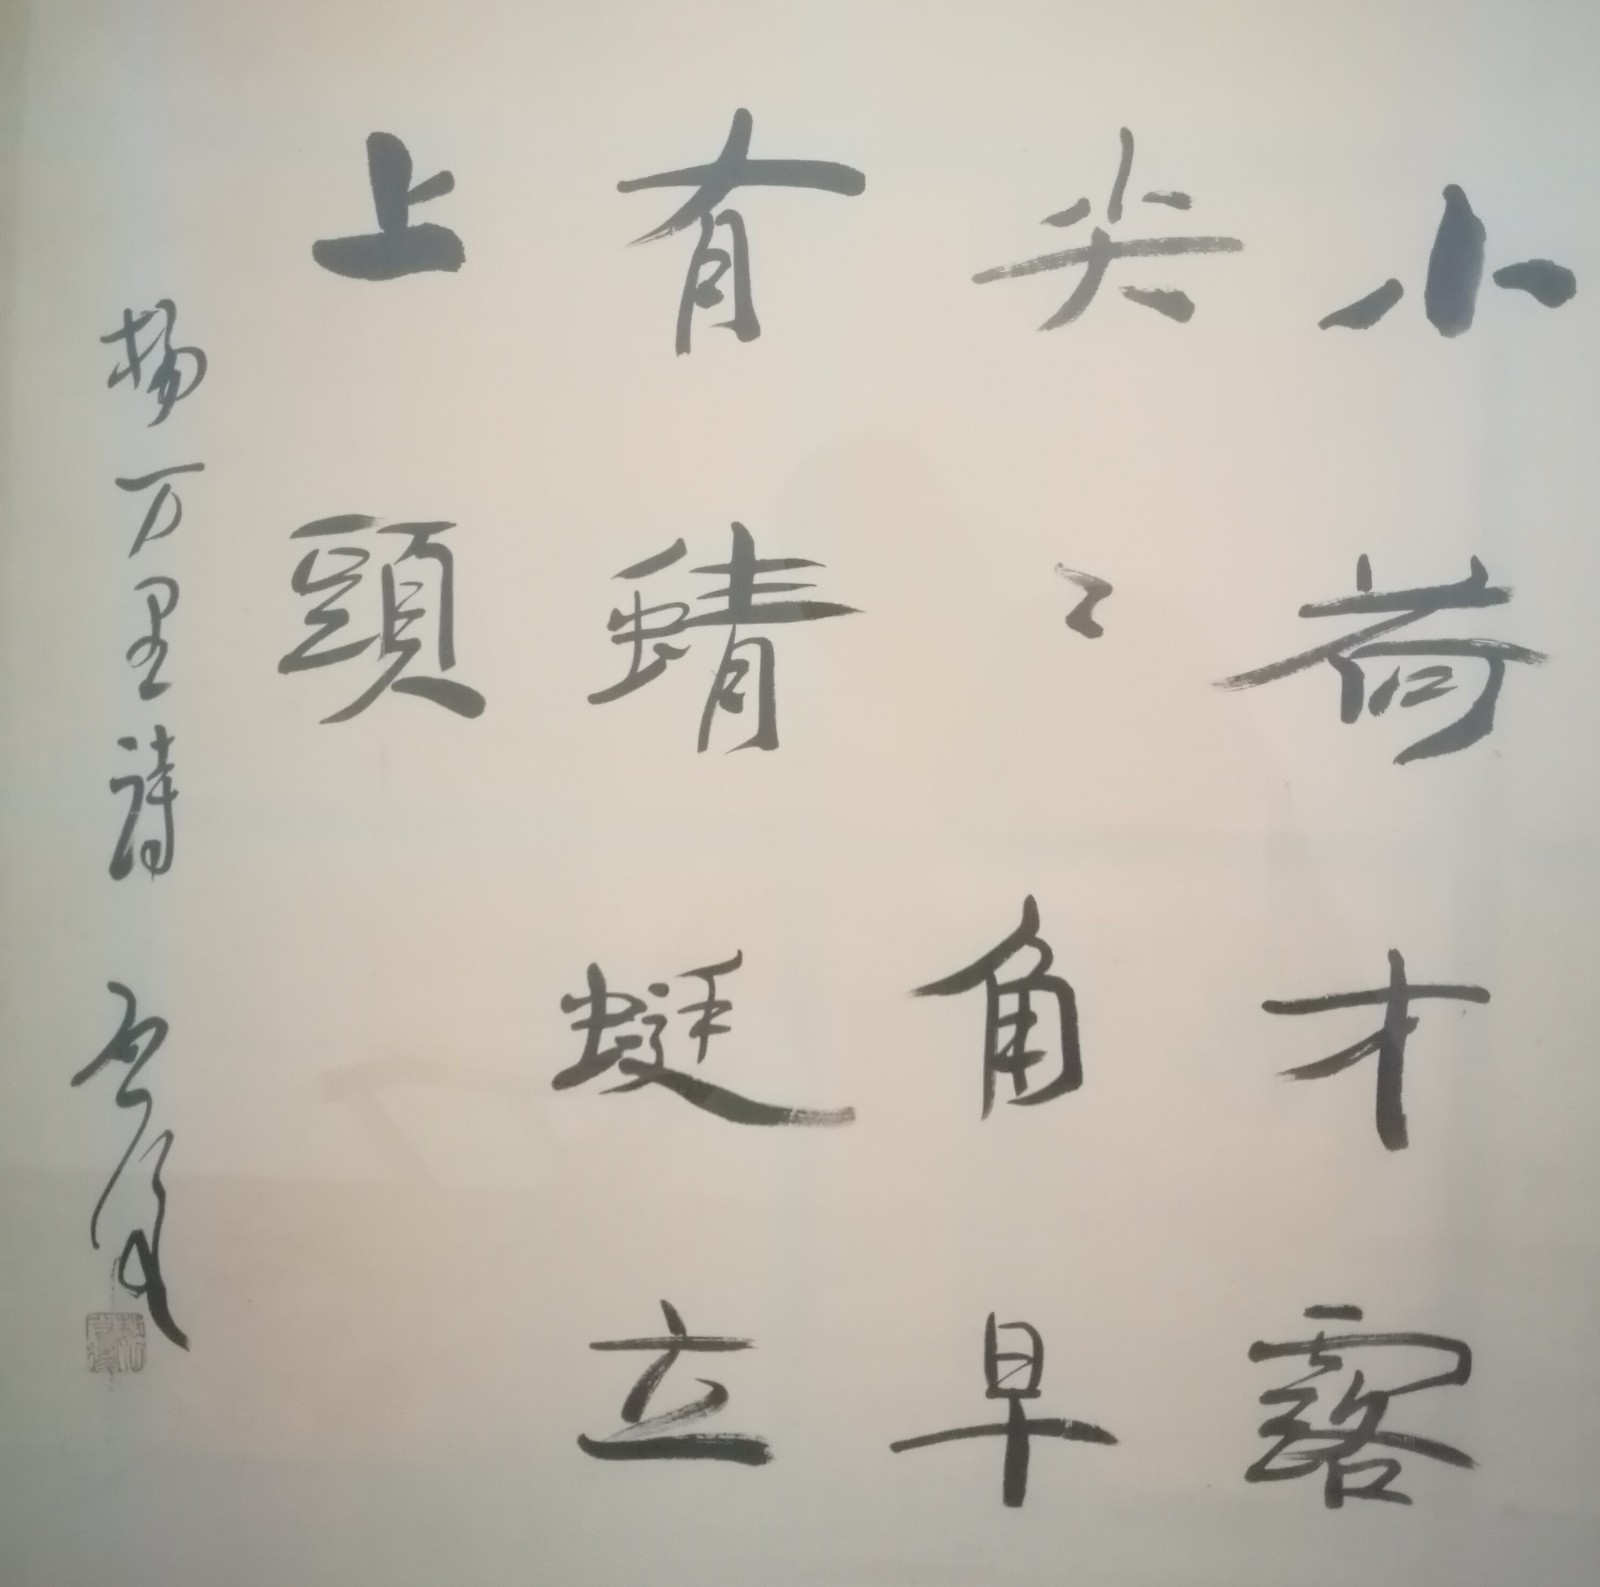 小荷才露
尖〻角早
有蜻蜓立
上頭
楊万里詩